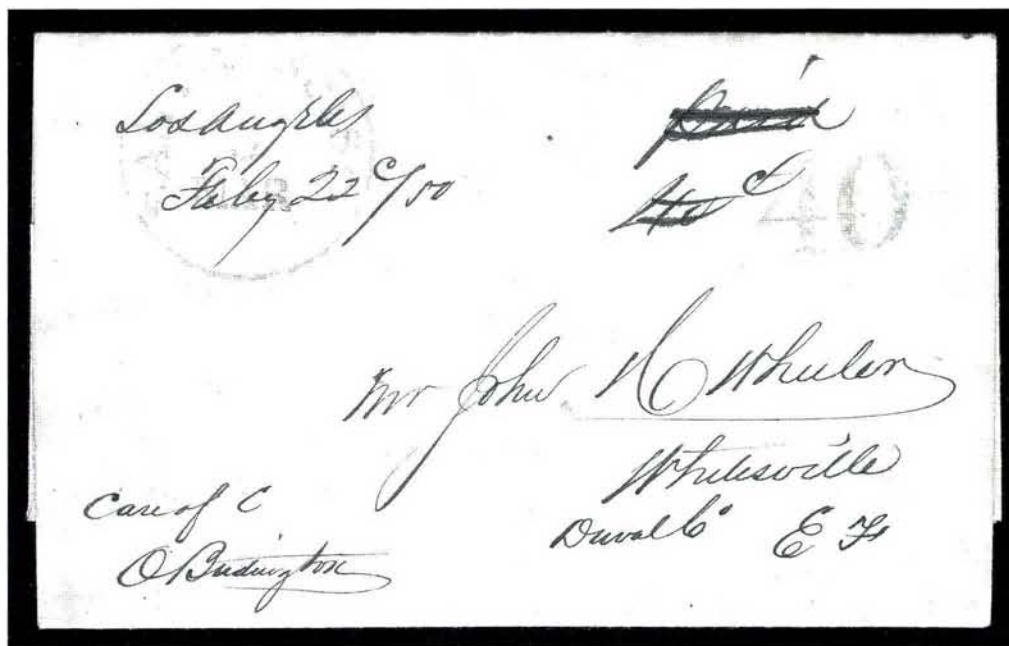 Los Angeles
Feby 22 C/50
Paid
40 c
40
Mr John H Wheeler
Whitesville
Duval Co E Fa
Care of C
O Budington